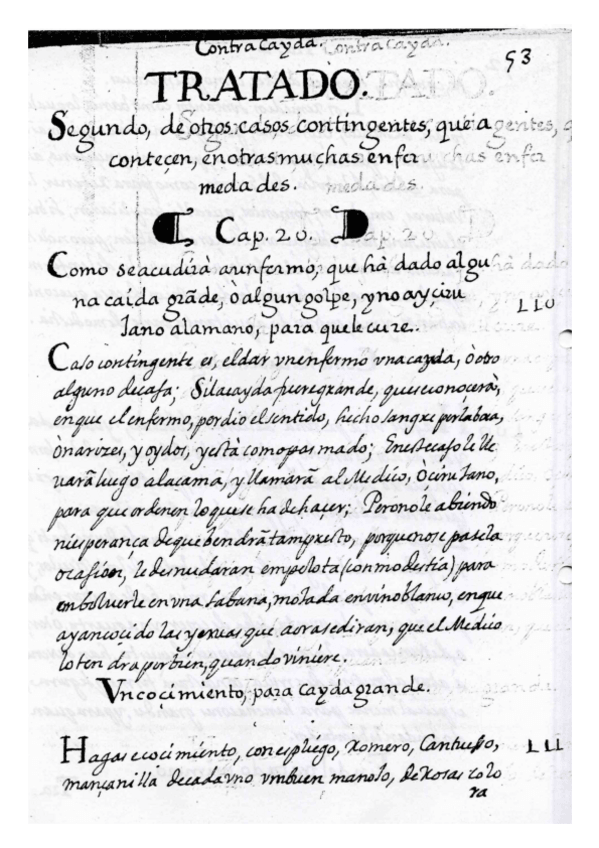 Contra cayda.
53
TRATADO.
Segundo, de otros casos contingentes, que a
conteçen, en otras muchas enfer
medades.
Cap. 20.
Como se acudirà a un fermo, que hà dado algu
na caída grãde, ò algun golpe, y no ay çiru
Jano alamano, para que le cure.
L LU
Caso contingente es, el dar vn enfermo vna cayda, ò otro
alguno de casa; Si la cayda fuere grande, que se conocerà,
en que el enfermo, perdio el sentido, hecho sangre por la boca,
ò narizes, y oydos, y està como pasmado; En este caso le lle
varã luego a la cama, y llamarã al Medico, ò ciruJano,
para que ordenen lo que se ha de haçer; Pero no le abiendo
ni esperança de que bendrã tam presto, porque no se pase la
ocasion, le desnudaran em pelota (con modestia) para
embolverle en vna sabana, moJada en vino blanco, en que
ayan cocido las yeruas que aora se diran, que el Medico
lo tendra por bien, quando viniere.
Vn coçimiento, para cayda grande.
Hagase cocimiento, con espliego, Romero, Cantueso,
mançanilla de cada vno vm buen manoJo, de Rosas colo
ra
L LU